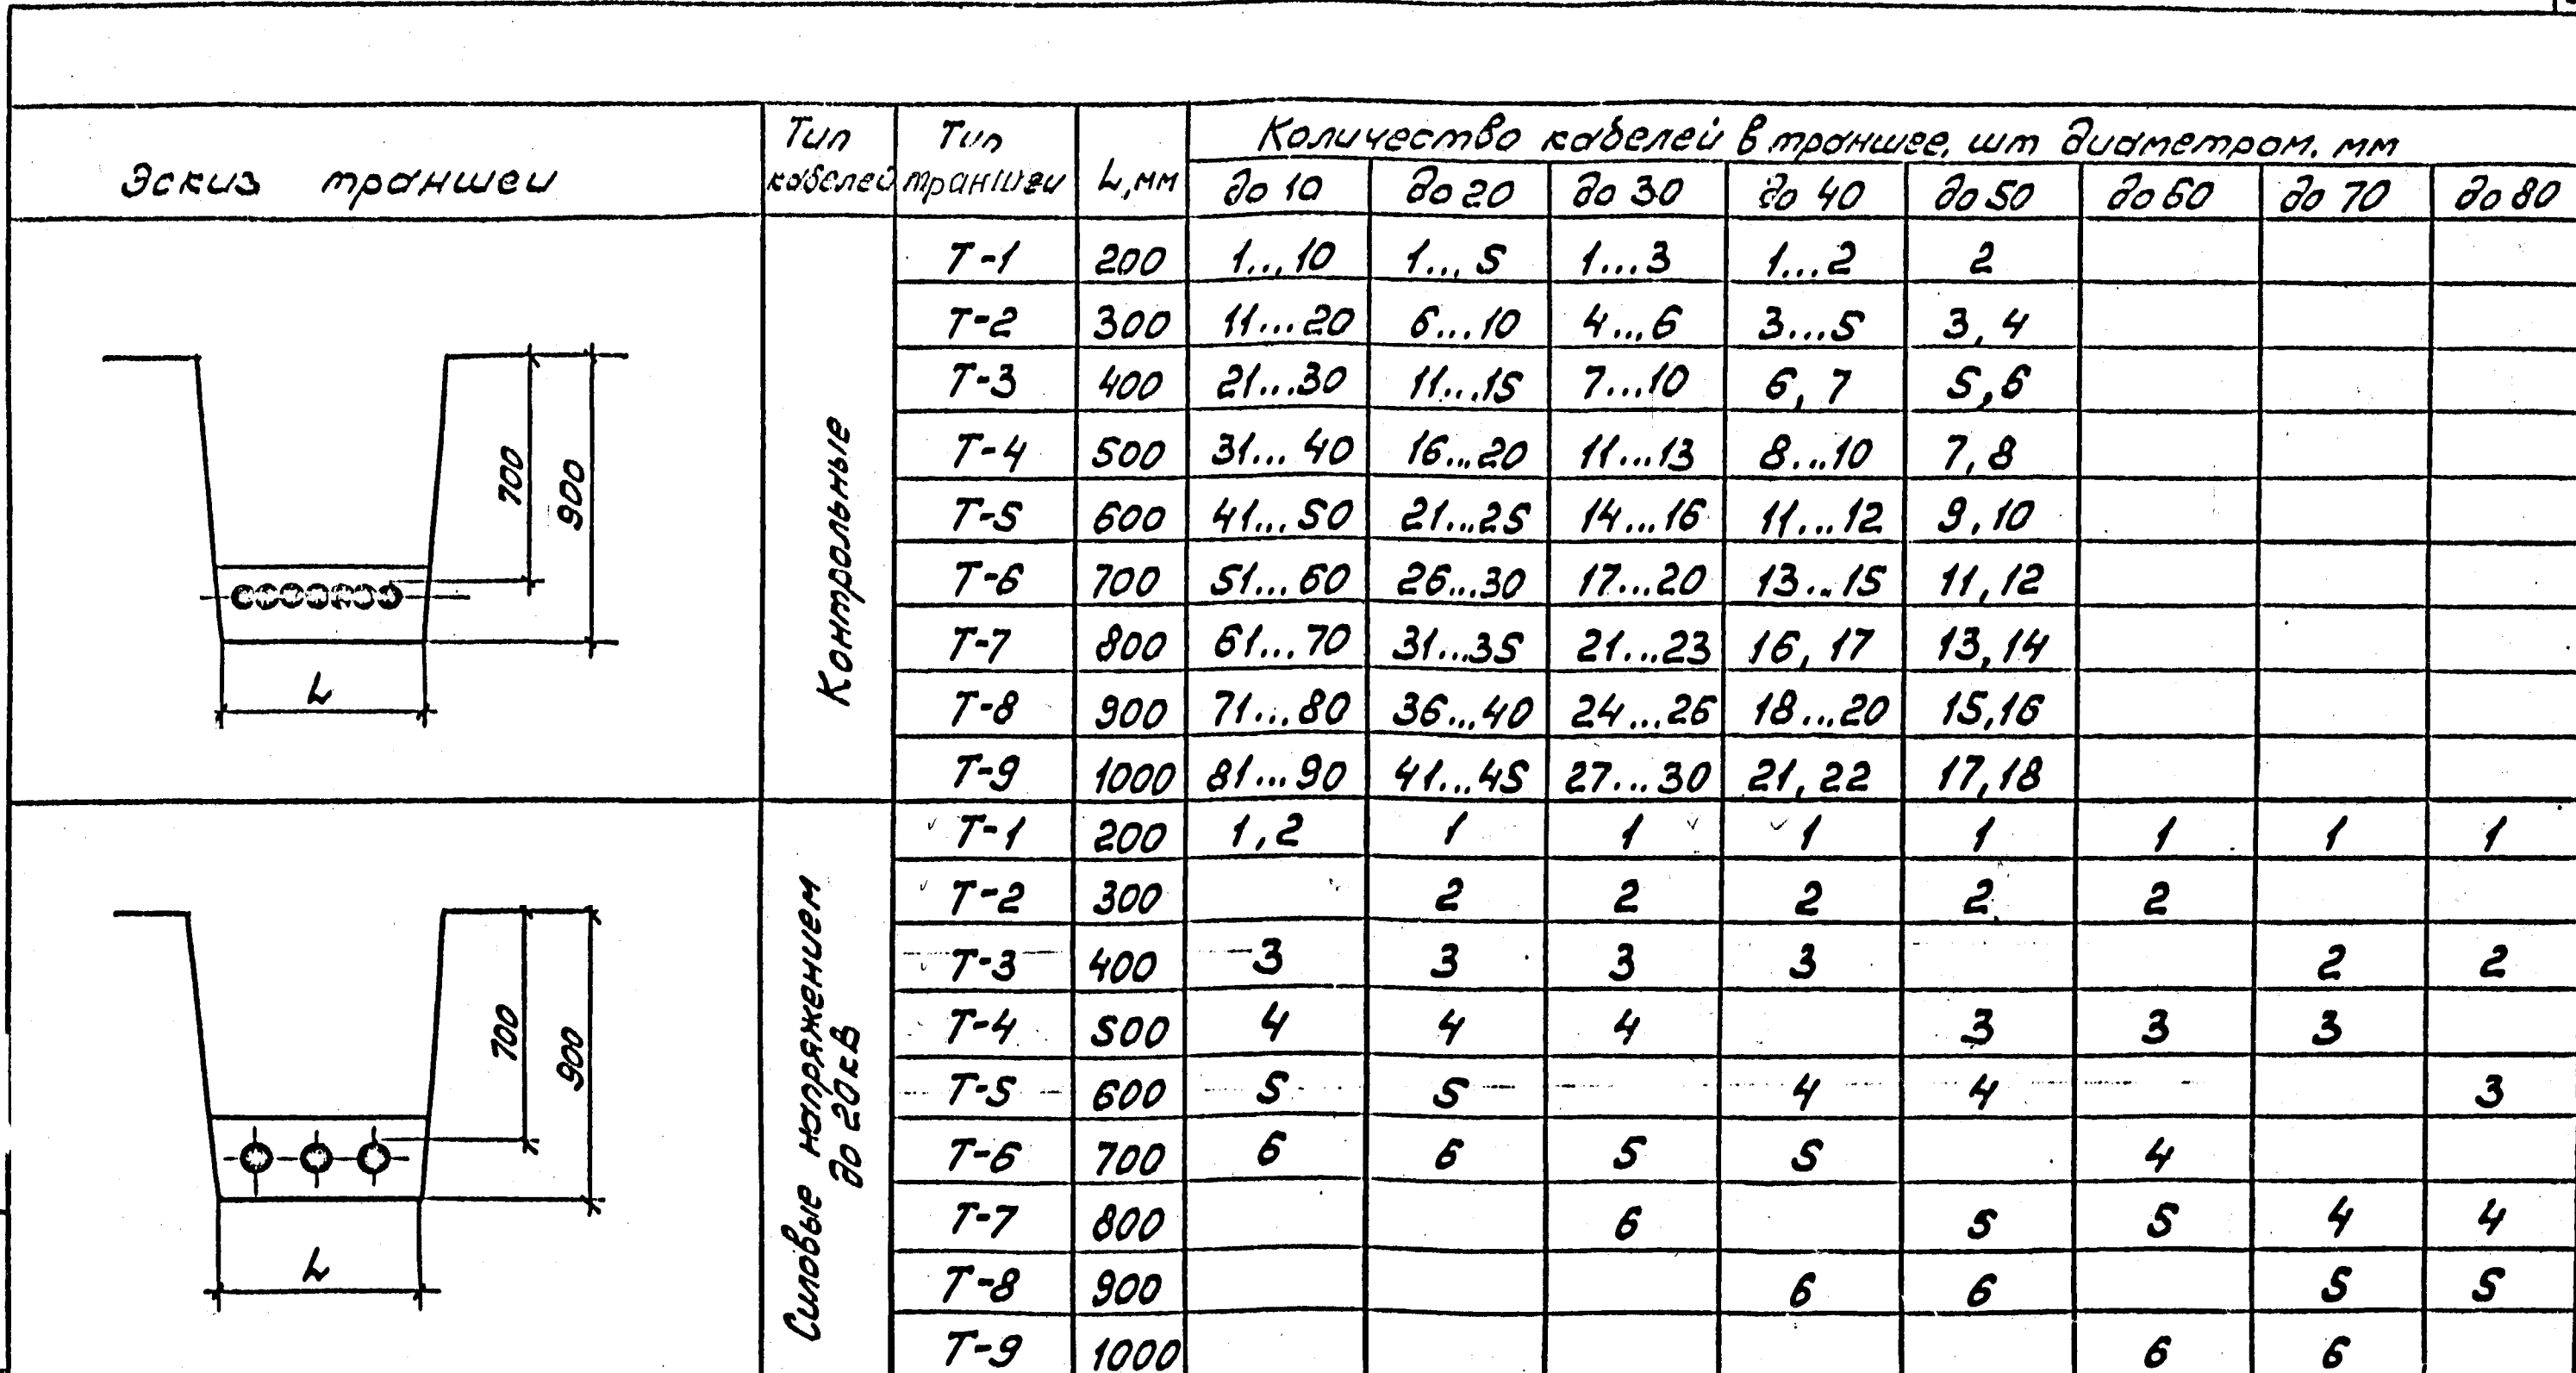 Эскиз траншеи | Тип кабелей | Тип траншеи | L, мм | Количество кабелей в траншее, шт диаметром, мм
до 10 | до 20 | до 30 | до 40 | до 50 | до 60 | до 70 | до 80
700
900
L
Контрольные
Т-1 | 200 | 1...10 | 1...5 | 1...3 | 1...2 | 2
Т-2 | 300 | 11...20 | 6...10 | 4...6 | 3...5 | 3,4
Т-3 | 400 | 21...30 | 11...15 | 7...10 | 6,7 | 5,6
Т-4 | 500 | 31...40 | 16...20 | 11...13 | 8...10 | 7,8
Т-5 | 600 | 41...50 | 21...25 | 14...16 | 11...12 | 9,10
Т-6 | 700 | 51...60 | 26...30 | 17...20 | 13...15 | 11,12
Т-7 | 800 | 61...70 | 31...35 | 21...23 | 16,17 | 13,14
Т-8 | 900 | 71...80 | 36...40 | 24...26 | 18...20 | 15,16
Т-9 | 1000 | 81...90 | 41...45 | 27...30 | 21,22 | 17,18
700
900
L
Силовые напряжением
до 20 кВ
Т-1 | 200 | 1,2 | 1 | 1 | 1 | 1 | 1 | 1 | 1
Т-2 | 300 | | 2 | 2 | 2 | 2 | 2
Т-3 | 400 | 3 | 3 | 3 | 3 | | | 2 | 2
Т-4 | 500 | 4 | 4 | 4 | | 3 | 3 | 3
Т-5 | 600 | 5 | 5 | | 4 | 4 | | | 3
Т-6 | 700 | 6 | 6 | 5 | 5 | | 4
Т-7 | 800 | | | 6 | | 5 | 5 | 4 | 4
Т-8 | 900 | | | | 6 | 6 | | 5 | 5
Т-9 | 1000 | | | | | | 6 | 6